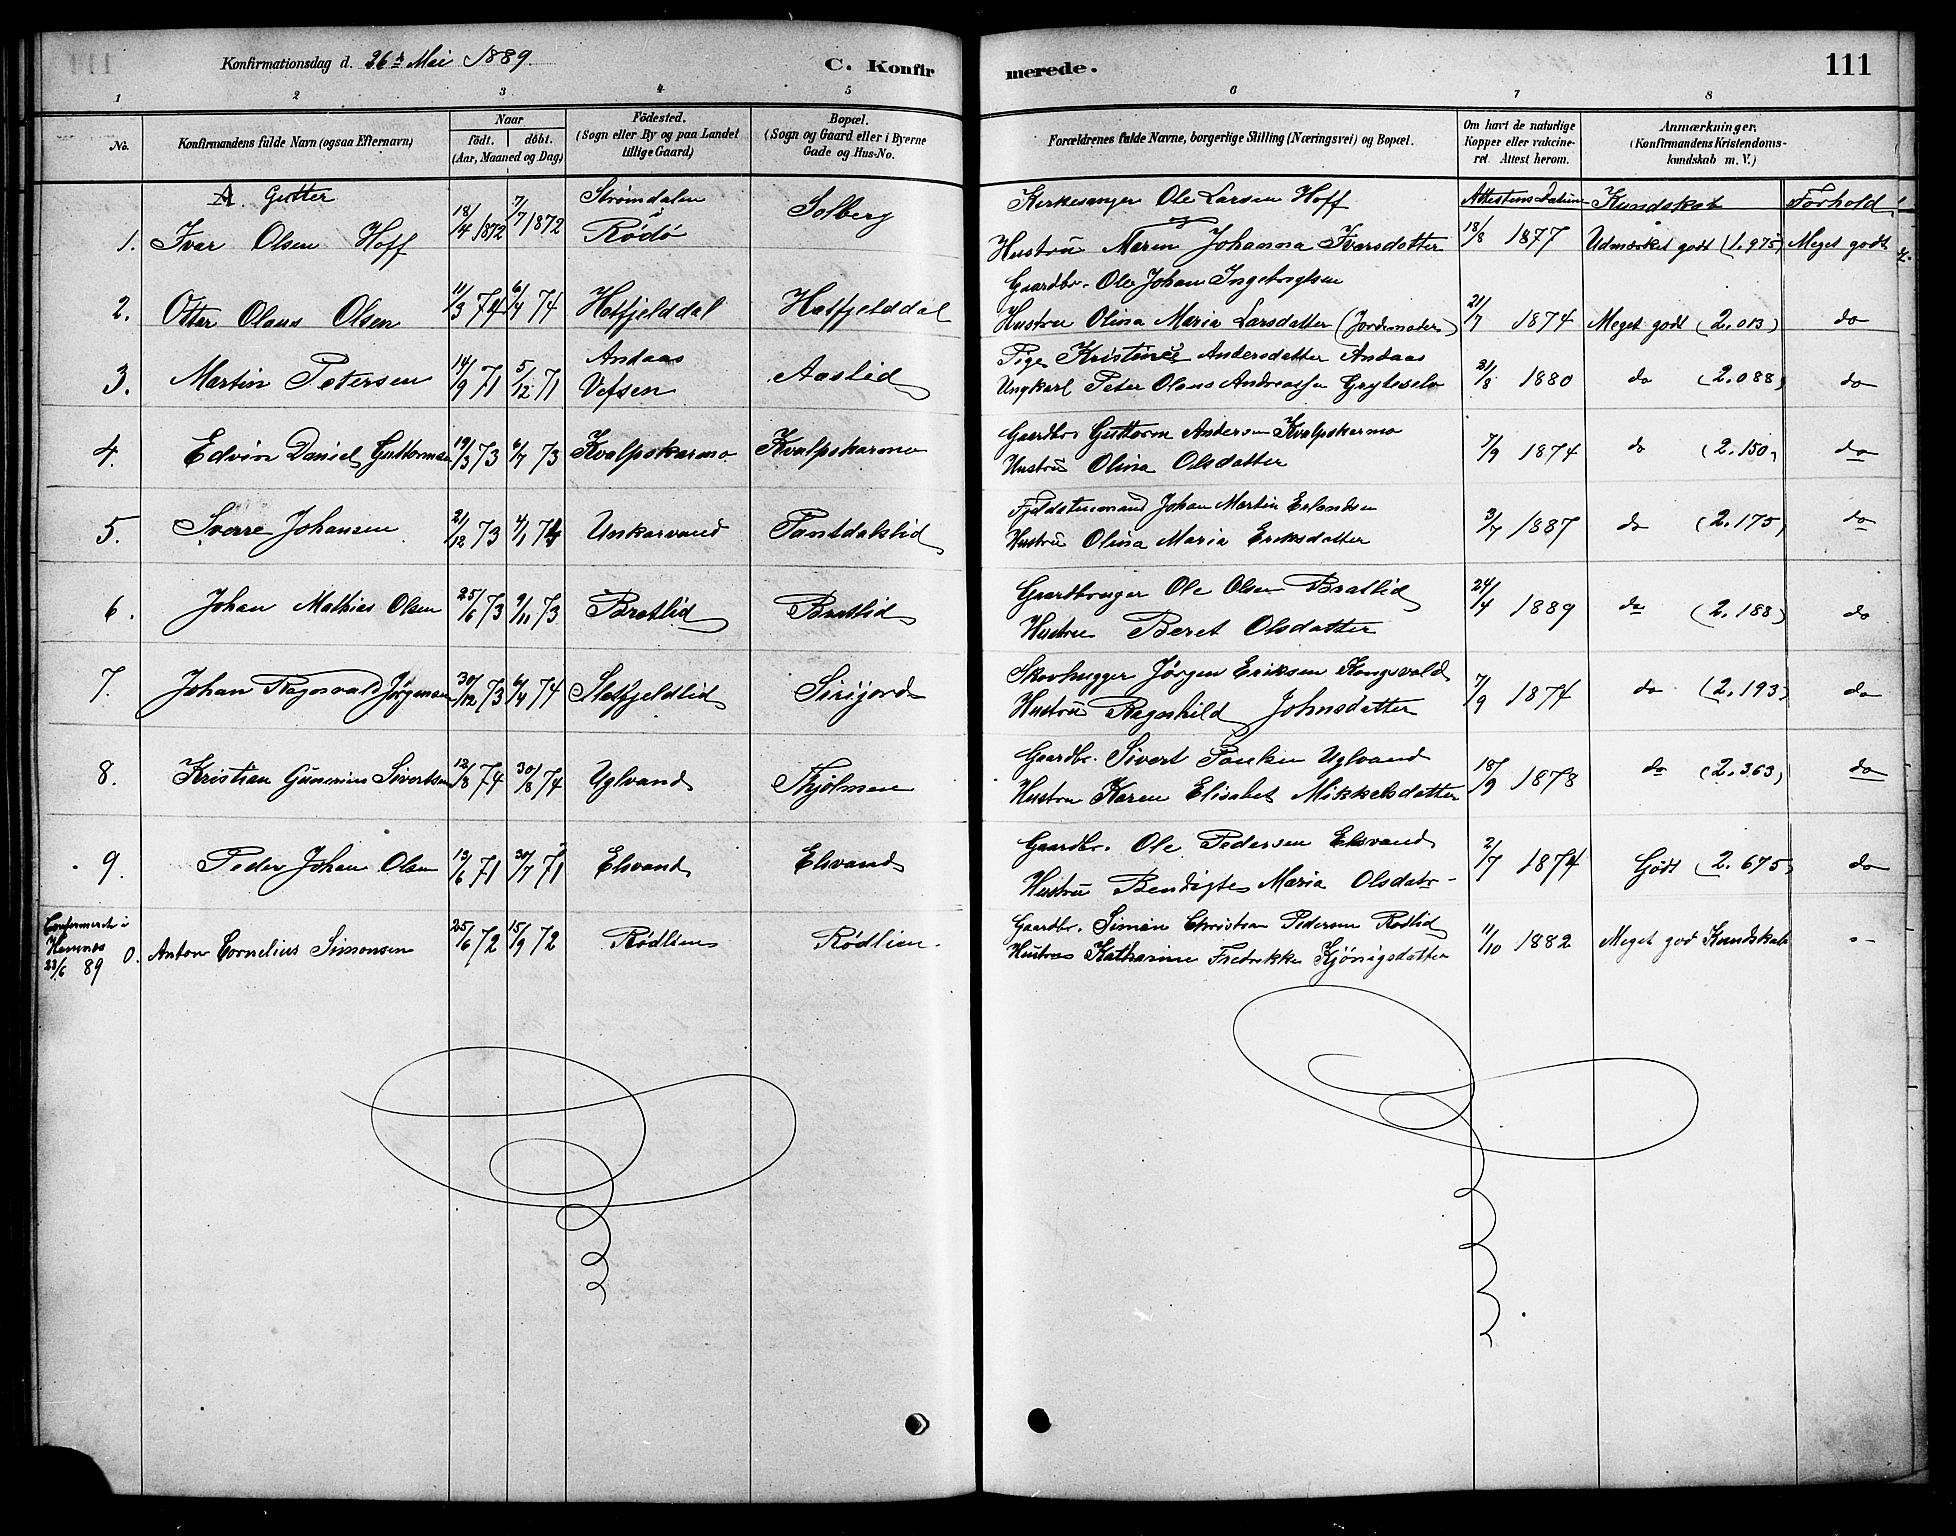 Konfirmationsdag d. 26d Mai 1889.
C. Konfirmerede.
111
1 2 3 4 5 6 7 8
No.
Konfirmandens fulde Navn (ogsaa Efternavn)
Naar
födt. döbt.
(Aar, Maaned og Dag)
Födested.
(Sogn eller By og paa Landet
tillige Gaard)
Bopæl.
(Sogn og Gaard eller i Byerne
Gade og Hus-No.
Forældrenes fulde Navne, borgerlige Stilling (Næringsvei) og Bopæl.
Om havt de naturlige
Kopper eller vakcine-
ret. Attest herom.
Anmærkninger.
(Konfirmandens Kristendoms-
kundskab m. V.)
A. Gutter
Attestens Datum Kundskab Forhold
Strömdalen Kirkesanger Ole Larsen Hoff
1. Ivar Olsen Hoff 18/4 1872 7/7 1872 Rödö Solberg og Hustru Maren Johanna Ivarsdatter 18/8 1877 Udmærket godt (1.975) Meget godt
Gaardbr. Ole Johan Ingebrigtsen
2. Otter Olaus Olsen 11/3 74 6/4 74 Hatfjelddal Hatfjelddal Hustru Olina Maria Larsdatter (Jordmoder) 21/7 1874 Meget godt (2.013) do
Andaas Pige Kristine Andersdatter Andaas
3. Martin Petersen 14/9 71 5/12 71 Vefsen Aaslid Ungkarl Peter Olaus Andreassen Grytselv 21/8 1880 do (2.088) do
Gaardbr. Guttorm Andersen Kvalpskarmo
4. Edvin Daniel Guttormsen 19/3 73 6/7 73 Kvalpskarmo Kvalpskarmo Hustru Olina Olsdatter 7/9 1874 do (2.150) do
Fjeldstuemand Johan Martin Erlandsen
5. Sverre Johansen 21/12 73 4/1 74 Unkarvand Hustru Olina Maria Eriksdatter 3/7 1887 do (2.175) do
Gaardbruger Ole Olsen Bratlid
6. Johan Mathias Olsen 25/6 73 9/11 73 Bratlid Bratlid Hustru Beret Olsdatter 24/4 1889 do (2.188) do
Skovhugger Jörgen Eriksen Kongsvold
7. Johan Ragnvald Jörgensen 30/12 73 6/4 74 Sirijord Hustru Ragnhild Johnsdatter 7/9 1874 do (2.193) do
Gaardbr. Sivert Uglvand
8. Kristian Gunerius Sivertsen 12/8 74 30/8 74 Uglvand Hustru Karen Elisabet Mikkelsdatter 18/9 1878 do (2.363) do
Gaardbr. Ole Pedersen Elsvand
9. Peder Johan Olsen 12/6 71 30/7 71 Elsvand Elsvand Hustru Bendigte Maria Olsdatr 2/7 1874 Godt (2.675) do
Confermeret i
Hemnes
23/6 89
Gaardbr. Simon Christian Pedersen Rödlid
0. Anton Cornelius Simonsen 25/6 72 15/9 72 Rödlien Rödlien Hustru Katharine Fredrikke Kjönigsdatter 11/10 1882 Meget god Kundskab